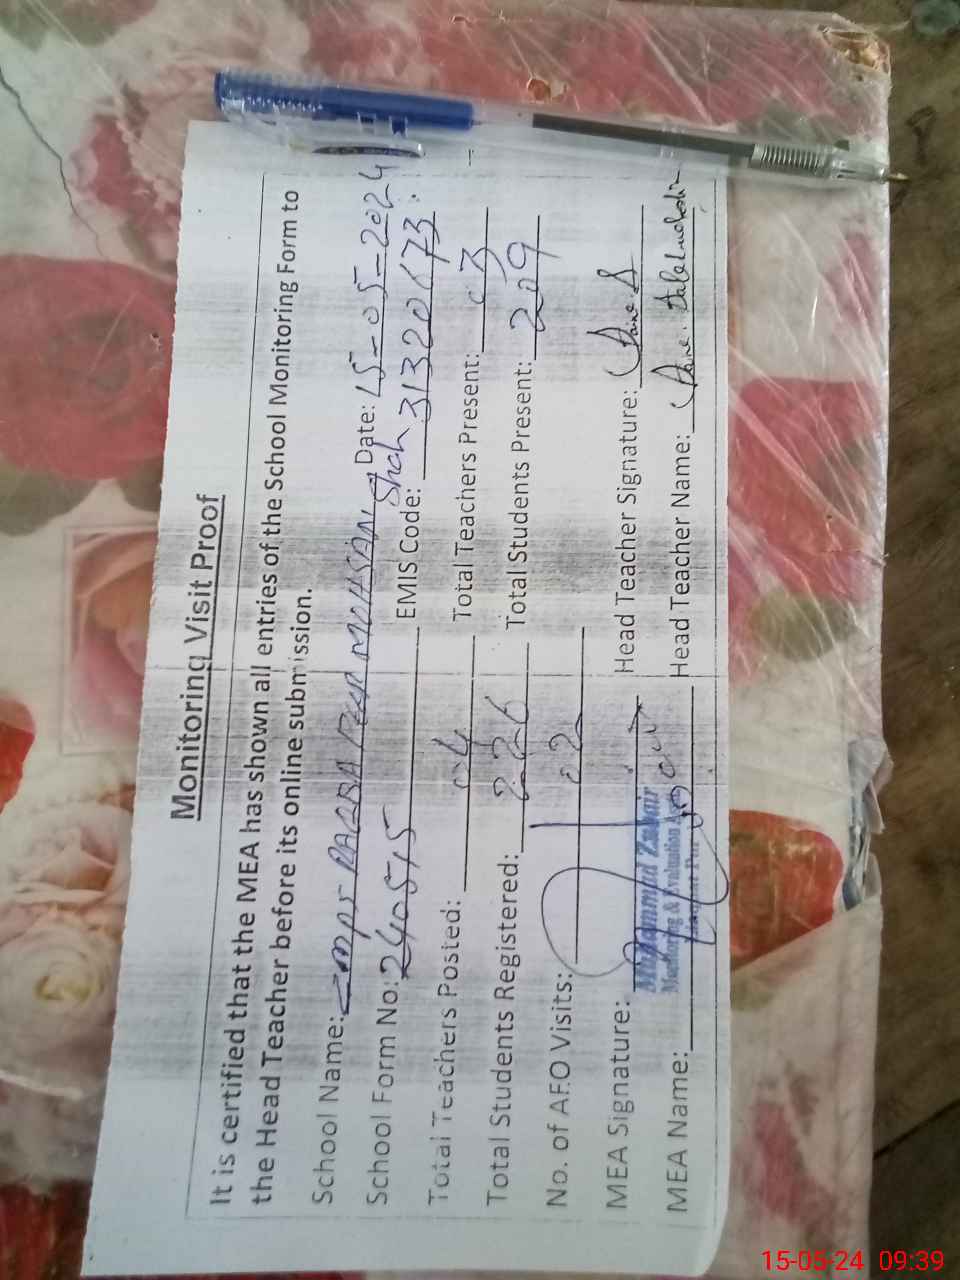 Monitoring Visit Proof
It is certified that the MEA has shown all entries of the School Monitoring Form to
the Head Teacher before its online submission.
School Name: GMPS PACCA PEER MOHSAN Shah Date: 15-05-2024
School Form No: 240515 EMIS Code: 31320673
Total Teachers Posted: 04 Total Teachers Present: 03
Total Students Registered: 226 Total Students Present: 209
No. of AEO Visits: 02
MEA Signature: Head Teacher Signature:
Muhammad Zubair
Monitoring & Evaluation
MEA Name: Head Teacher Name:
15-05-24 09:39